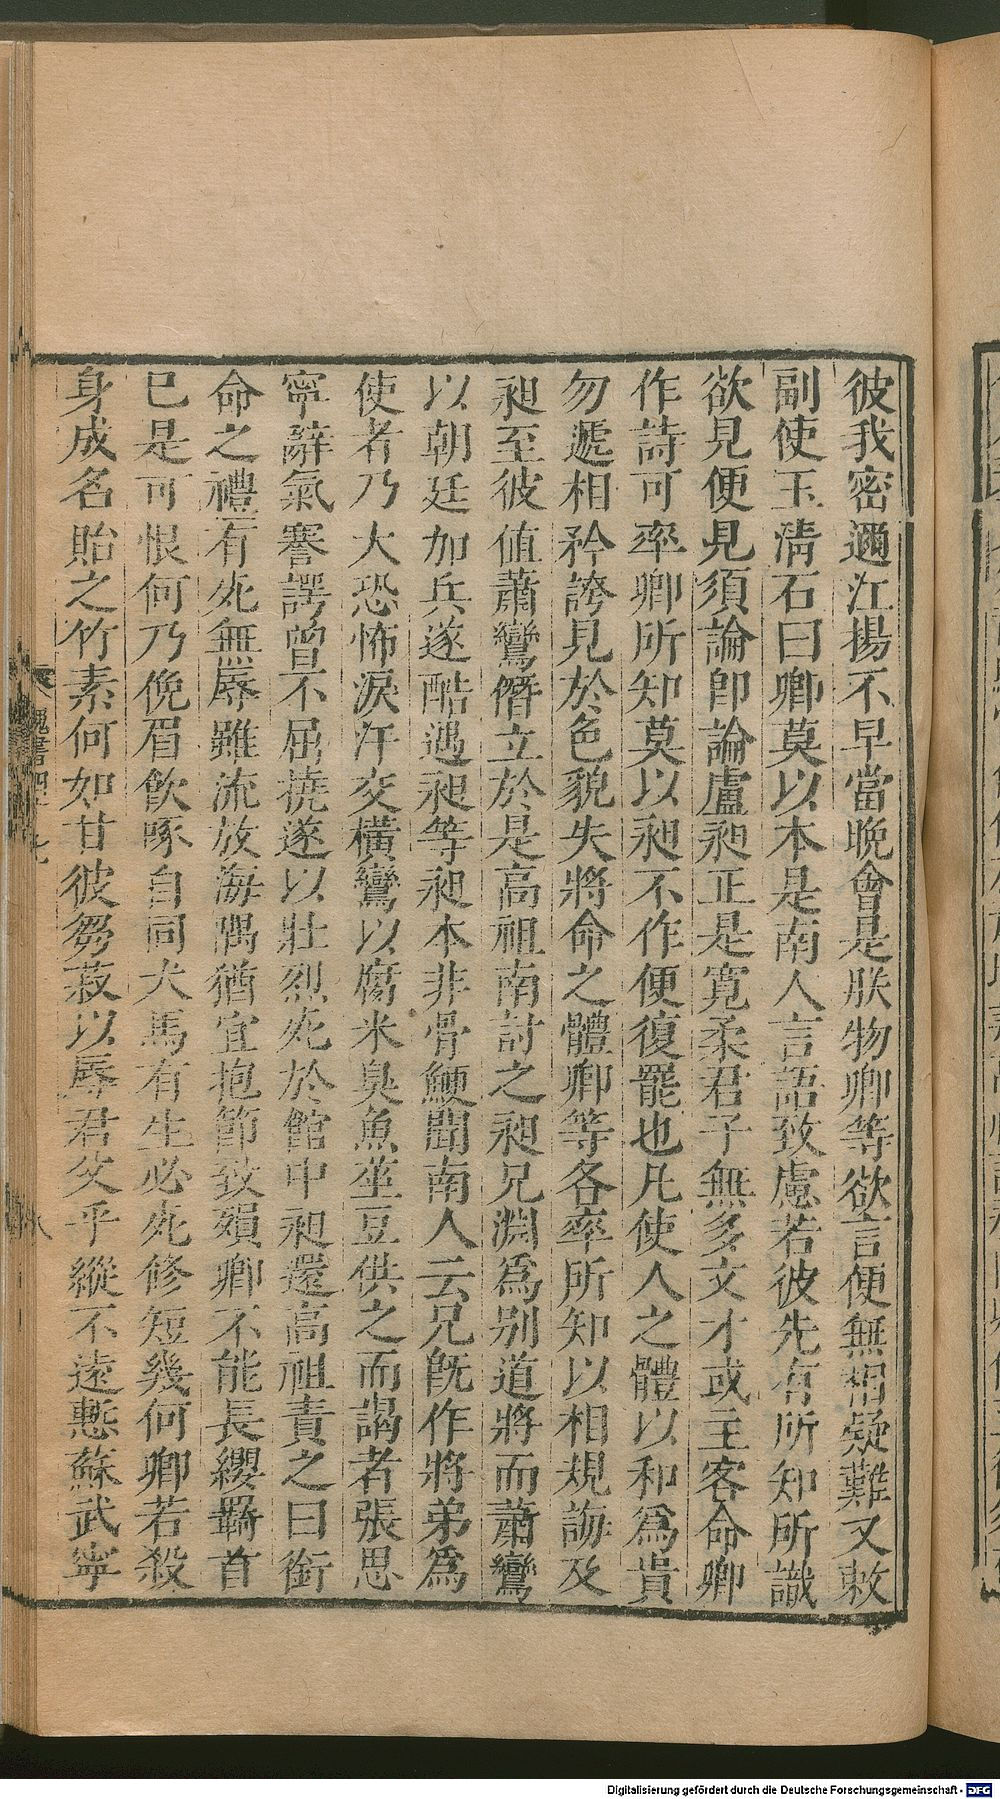 彼我密邇江揚不早當晩會是朕物卿等欲言便無相疑難又敕
副使王清石曰卿莫以本是南人言語致慮若彼先有所知所識
欲見便見須論卽論盧昶正是寬柔君子無多文才或主客命卿
作詩可率卿所知莫以昶不作便復罷也凡使人之體以和爲貴
勿遞相矜誇見於色貌失將命之體卿等各率所知以相規誨及
昶至彼値蕭鸞僭立於是高祖南討之昶兄淵爲别道將而蕭鸞
以朝廷加兵遂酷遇昶等昶本非骨鯁聞南人云兄旣作將弟爲
使者乃大恐怖淚汗交橫鸞以腐米臭魚莝豆供之而謁者張思
寧辭氣謇諤曾不屈撓遂以壯烈死於館中昶還高祖責之曰銜
命之禮有死無辱雖流放海隅猶宜抱節致殞卿不能長纓羈首
已是可恨何乃俛眉飮啄自同犬馬有生必死修短幾何卿若殺
身成名貽之竹素何如甘彼芻菽以辱君父乎縱不遠慙蘇武寧
魏書四十七
八
Digitalisierung gefördert durch die Deutsche Forschungsgemeinschaft - DFG